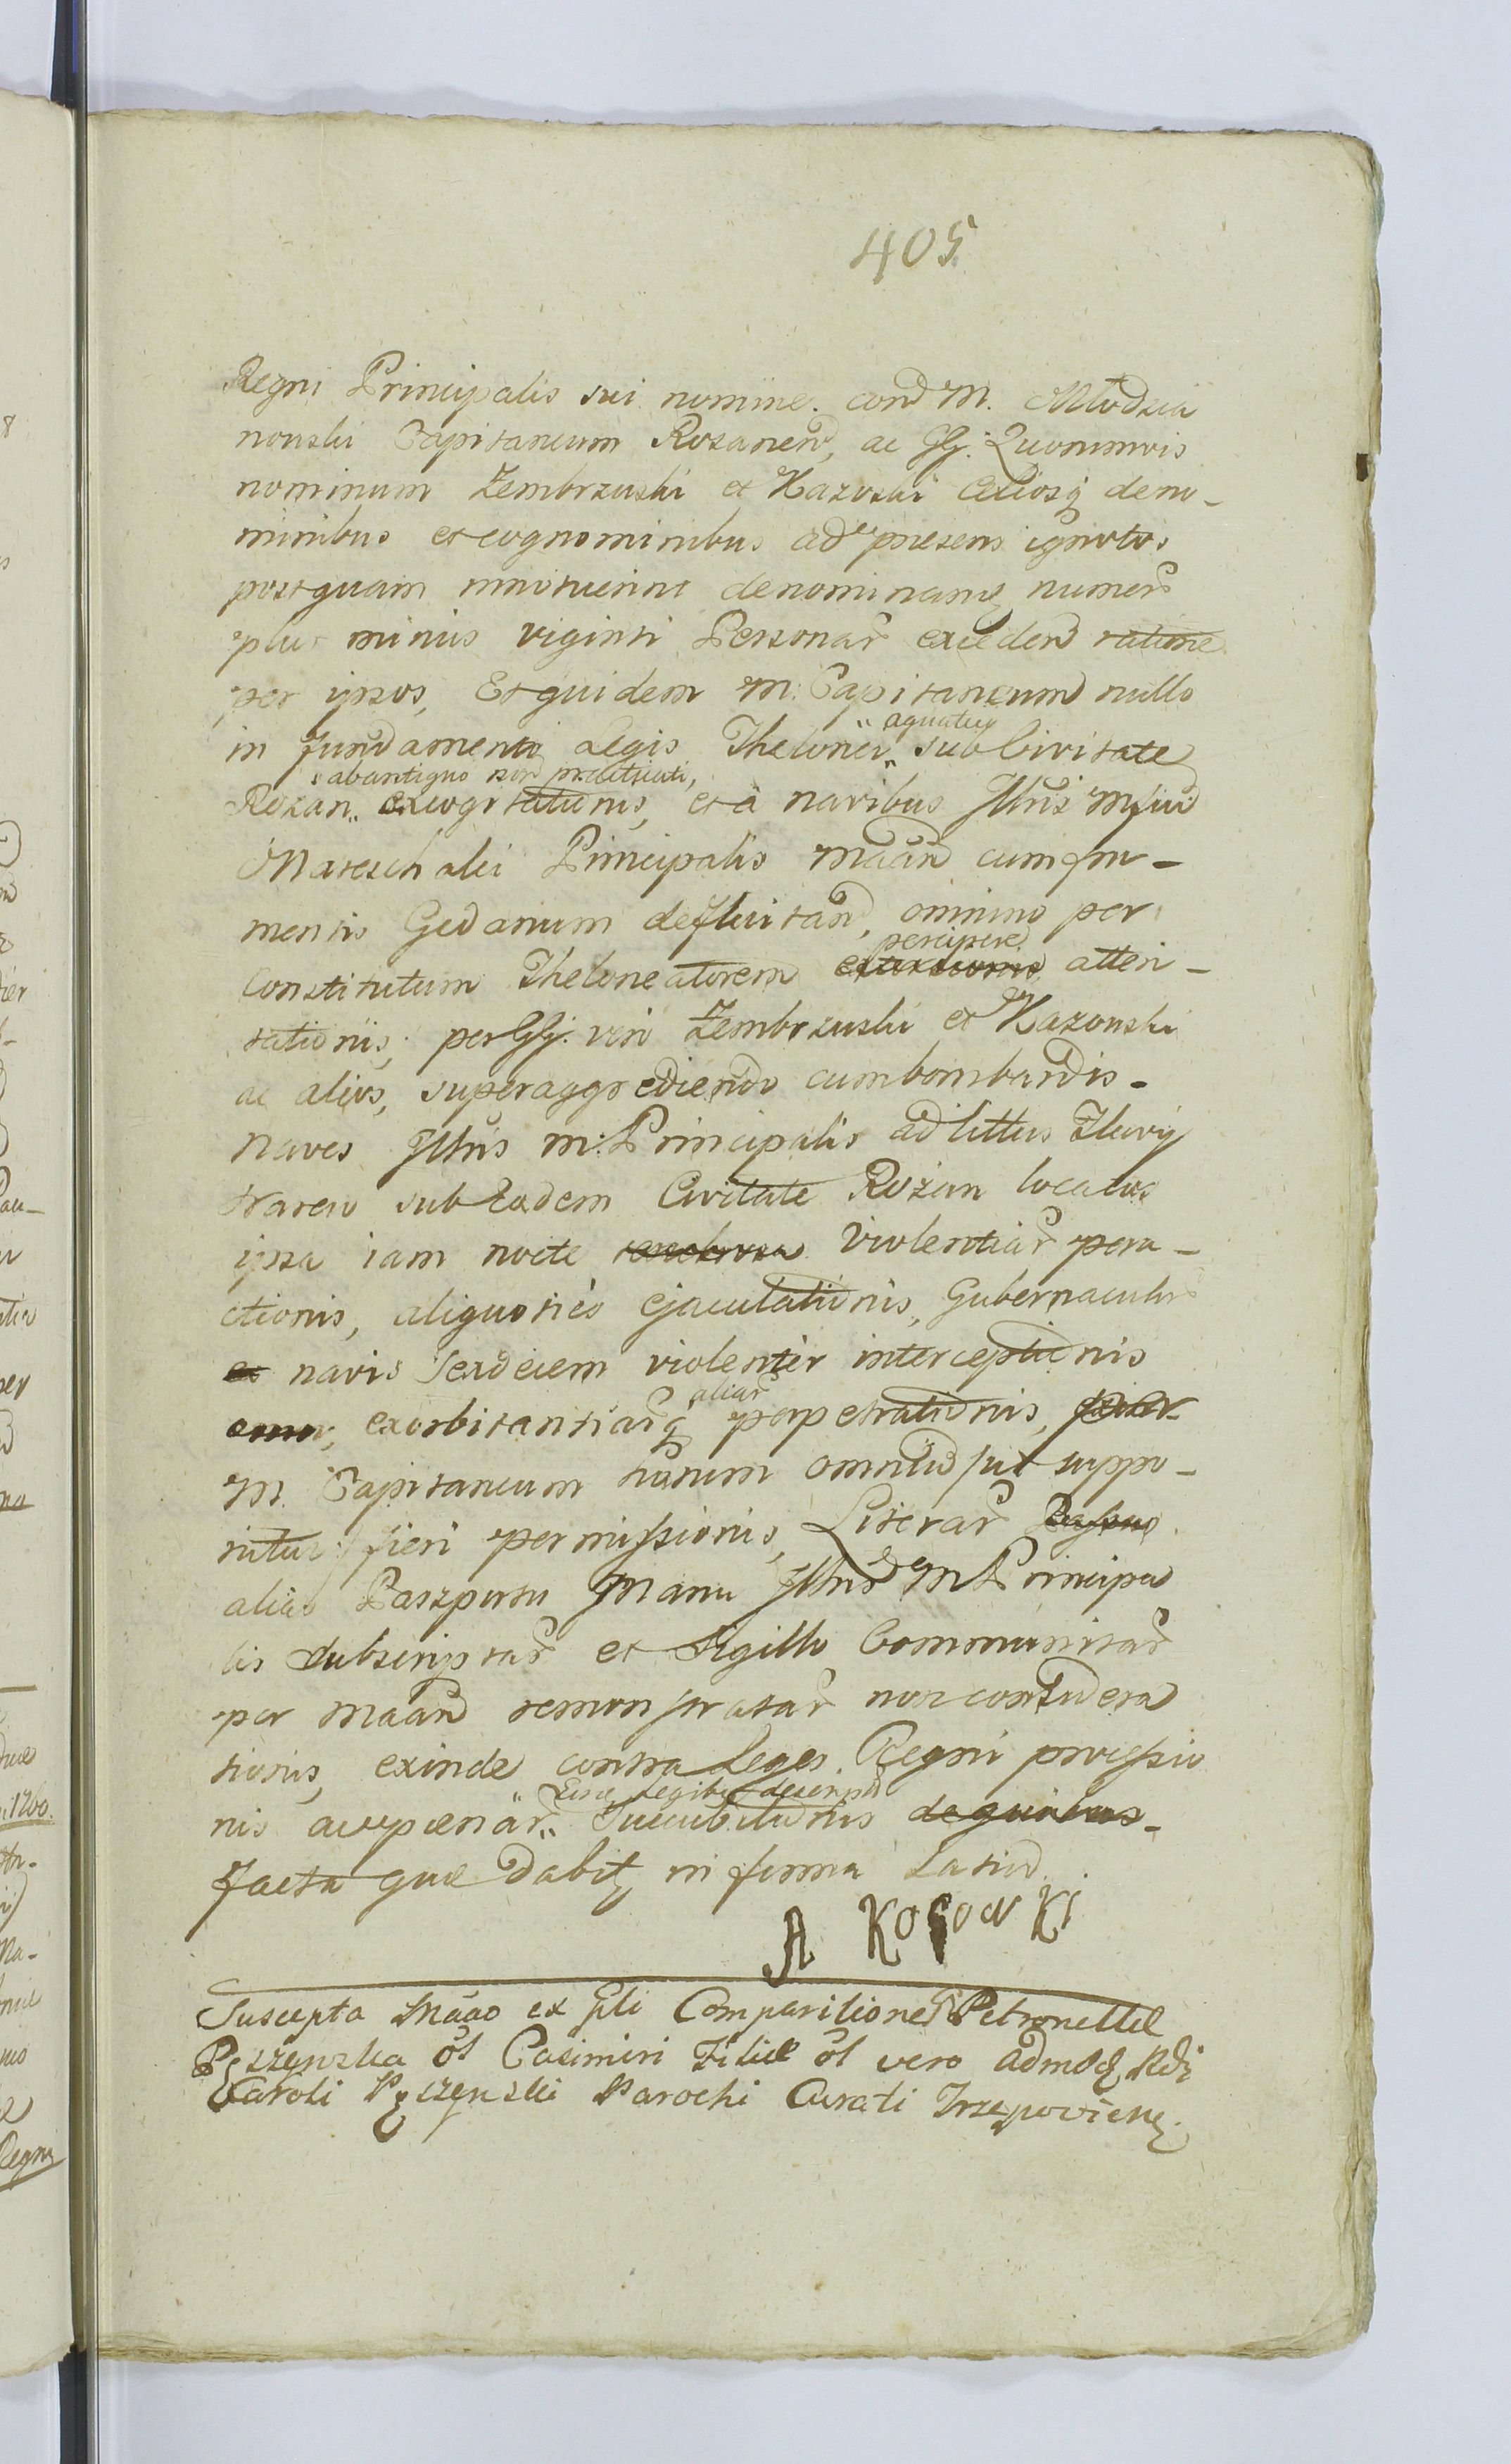 405
Regni Principalis sui nomine. cond M. Młodzia
nowski Capitaneum Rozanend, ac GG. Quorumvis
nominum Zembrzuski et Kazoski aliosq deno-
minibus et cognominibus ad praesens ignotos
postquam innotuerint denominanq numero
plus minus viginti Personar exceden ratione
per ipsos, Et quidem M: Capitaneum nullo
in fundamento Legis Thelonei aquatici sub Civitate
Rozan abantiquo non practicati, excogitationis, et à navibus Illris Mfici
Mareschalci Principalis Maand cum fru-
mentis Gedanum defluitand, omnino per
Constitutum Theloneatorem percipere atten-
tationis; per GG. vero Zembrzuski et Kazouski
ac alios, superaggrediendo cum bombardis
naves Illris M: Principalis ad littus Fluvij
Narew sub Eadem Civitate Rożan locatas
ipsa iam nocte Violentiar pera-
ctionis, aliquoties ejaculationis, Gubernaculi
navis sexdecem violenter interceptionis
exorbitantiarq aliar perpetrationis,
M. Capitaneum suppo-
nitur fieri permissionis, Literar
alias Paszportu Manu Illris M Principa
lis subscriptar et Sigillo Communitar
per Maand remonstratar non considera
tionis, exinde contra Leges Regni processio
nis ac paenar Legibus descript Succubitionis de quibus
facta quae dabitq in forma Latiod.
A Kosowski
Suscepta Maao ex Gli Comparitione G Petronellae
Pęszenska ol Casimiri Filiae ol vero admodq Rdi
Caroli Pęszenski Parochi Curati